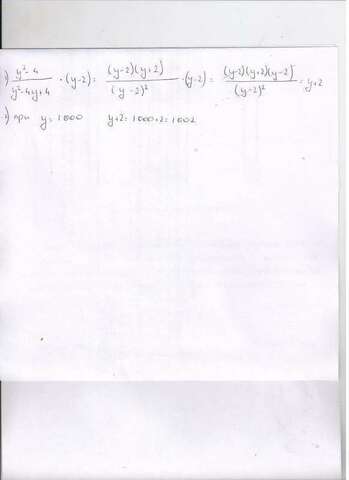 1) (y²-4)/(y²-4y+4) · (y-2) = (y-2)(y+2)/(y-2)² · (y-2) = (y-2)(y+2)(y-2)/(y-2)² = y+2
2) при y=1000 y+2=1000+2=1002